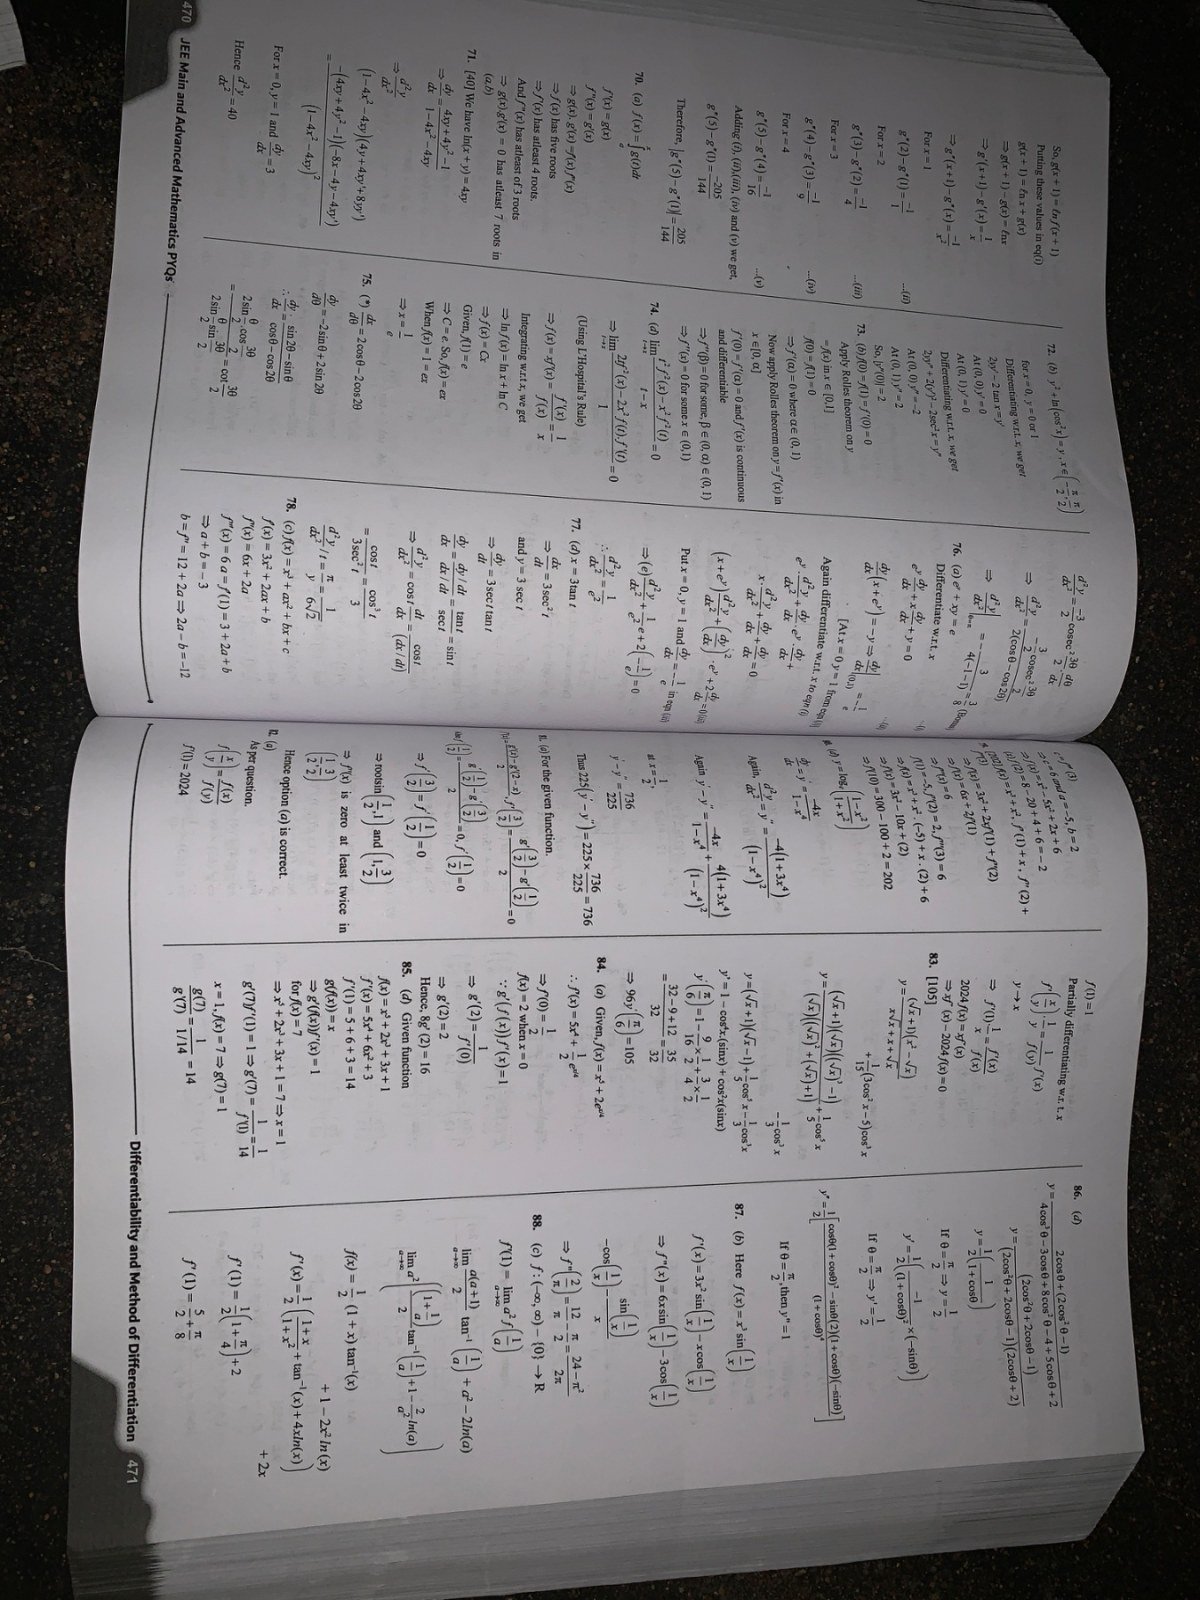 So, g(x + 1) = ℓn f(x + 1)
Putting these values in eq(i)
g(x + 1) = ℓn x + g(x)
⇒ g(x + 1) – g(x) = ℓnx
⇒ g'(x+1) – g'(x) = 1/x
⇒ g"(x+1) – g"(x) = –1/x²
For x = 1
g"(2) – g"(1) = –1/1 ...(ii)
For x = 2
g"(3) – g"(2) = –1/4 ...(iii)
For x = 3
g"(4) – g"(3) = –1/9 ...(iv)
For x = 4
g"(5) – g"(4) = –1/16 ...(v)
Adding (i), (ii),(iii), (iv) and (v) we get,
g"(5) – g"(1) = –205/144
Therefore, |g"(5) – g"(1)| = 205/144
70. (a) f(x) = ∫ g(t)dt
f'(x) = g(x)
f"(x) = g'(x)
⇒ g(x). g'(x) = f'(x) f"(x)
⇒ f(x) has five roots
⇒ f'(x) has atleast 4 roots.
And f"(x) has atleast of 3 roots
⇒ g(x).g'(x) = 0 has atleast 7 roots in
(a,b)
71. [40] We have ln(x + y) = 4xy
⇒ dy/dx = (4xy + 4y² – 1)/(1 – 4x² – 4xy)
⇒ d²y/dx²
(1 – 4x² – 4xy)(4y + 4xy' + 8yy')
= –(4xy + 4y² – 1)(–8x – 4y – 4xy')/(1 – 4x² – 4xy)²
For x = 0, y = 1 and dy/dx = 3
Hence d²y/dx² = 40
72. (b) y² + ln(cos²x) = y, x ∈ (–π/2, π/2)
for x = 0, y = 0 or 1
Differentiating w.r.t. x, we get
2yy' – 2 tan x = y'
At (0, 0) y' = 0
At (0, 1) y' = 0
Differentiating w.r.t. x, we get
2yy" + 2(y')² – 2sec²x = y"
At (0, 0) y" = –2
At (0, 1) y" = 2
So, |y"(0)| = 2
73. (b) f(0) = f(1) = f'(0) = 0
Apply Rolles theorem on y
= f(x) in x ∈ [0,1]
f(0) = f(1) = 0
⇒ f'(α) = 0 where α ∈ (0, 1)
Now apply Rolles theorem on y = f'(x) in
x ∈ [0, α]
f'(0) = f'(α) = 0 and f'(x) is continuous
and differentiable
⇒ f"(β) = 0 for some, β ∈ (0, α) ∈ (0, 1)
⇒ f"(x) = 0 for some x ∈ (0,1)
74. (d) lim t→x (t²f²(x) – x²f²(t))/(t – x) = 0
⇒ lim t→x (2tf²(x) – 2x²f(t).f'(t))/1 = 0
(Using L'Hospital's Rule)
⇒ f(x) = xf'(x) ⇒ f'(x)/f(x) = 1/x
Integrating w.r.t. x, we get
⇒ ln f(x) = ln x + ln C
⇒ f(x) = Cx
Given, f(1) = e
⇒ C = e. So, f(x) = ex
When f(x) = 1 = ex
⇒ x = 1/e
75. (*) dx/dθ = 2cosθ – 2cos2θ
dy/dθ = –2sinθ + 2sin2θ
∴ dy/dx = (sin2θ – sinθ)/(cosθ – cos2θ)
= (2sin θ/2 . cos 3θ/2)/(2sin θ/2 sin 3θ/2) = cot 3θ/2
d²y/dx² = –3/2 cosec² 3θ/2 . dθ/dx
⇒ d²y/dx² = (–3/2 cosec² 3θ/2)/(2(cosθ – cos2θ))
⇒ d²y/dx²|θ=π = –3/(4(–1–1)) = 3/8
76. (a) eʸ + xy = e
Differentiate w.r.t. x
eʸ dy/dx + x dy/dx + y = 0
dy/dx (x + eʸ) = –y ⇒ dy/dx|(0,1) = –1/e
[At x = 0 y = 1 from eqn (i)]
Again differentiate w.r.t. x to eqn (i)
eʸ . d²y/dx² + dy/dx . eʸ . dy/dx +
x . d²y/dx² + dy/dx + dy/dx = 0
(x + eʸ) d²y/dx² + (dy/dx)² . eʸ + 2 dy/dx = 0 (iii)
Put x = 0, y = 1 and dy/dx = –1/e in eqn (iii)
⇒ (e) d²y/dx² + 1/e² e + 2(–1/e) = 0
∴ d²y/dx² = 1/e²
77. (d) x = 3tan t
⇒ dx/dt = 3sec²t
and y = 3 sec t
⇒ dy/dt = 3sec t tan t
dy/dx = (dy/dt)/(dx/dt) = tan t/sec t = sin t
⇒ d²y/dx² = cos t . dt/dx = cos t/(dx/dt)
= cos t/3sec²t = cos³t/3
d²y/dx² / t = π/y = 1/6√2
78. (c) f(x) = x³ + ax² + bx + c
f'(x) = 3x² + 2ax + b
f"(x) = 6x + 2a
f'''(x) = 6 a = f'(1) = 3 + 2a + b
⇒ a + b = – 3
b = f" = 12 + 2a ⇒ 2a – b = –12
470 JEE Main and Advanced Mathematics PYQs
c = f'''(3)
⇒ c = 6 and a = –5, b = 2
⇒ f(x) = x³ – 5x² + 2x + 6
f(2) = 8 – 20 + 4 + 6 = –2
f(x) = x³ + x². f'(1) + x. f"(2) +
⇒ f'(x) = 3x² + 2xf'(1) + f"(2)
⇒ f"(x) = 6x + 2f'(1)
⇒ f'''(x) = 6
f'(1) = –5, f"(2) = 2, f'''(3) = 6
⇒ f(x) = x³ + x². (–5) + x. (2) + 6
⇒ f'(x) = 3x² – 10x + (2)
⇒ f'(10) = 300 – 100 + 2 = 202
(d) y = logₑ((1 – x²)/(1 + x²))
dy/dx = y' = –4x/(1 – x⁴)
Again, d²y/dx² = y" = –4(1 + 3x⁴)/(1 – x⁴)²
Again y' – y" = –4x/(1 – x⁴) + 4(1 + 3x⁴)/(1 – x⁴)²
at x = 1/2,
y' – y" = 736/225
Thus 225(y' – y") = 225 × 736/225 = 736
81. (a) For the given function.
f'(x) = (g'(x) – g'(2 – x))/2, f'(3/2) = (g'(3/2) – g'(1/2))/2 = 0
f'(1/2) = (g'(1/2) – g'(3/2))/2 = 0, f'(1/2) = 0
⇒ f'(3/2) = f'(1/2) = 0
⇒ rootsin (1/2, 1) and (1, 3/2)
⇒ f"(x) is zero at least twice in
(1/2, 3/2)
Hence option (a) is correct.
82. (a)
As per question.
f(x/y) = f(x)/f(y)
f'(1) = 2024
f(1) = 1
Partially differentiating w. r. t. x
f'(x/y) . 1/y = 1/f(y) f'(x)
y → x
⇒ f'(1) . 1/x = f'(x)/f(x)
2024 f(x) = xf'(x)
⇒ xf'(x) – 2024 f(x) = 0
83. [105]
y = (√x + 1)(x² – √x)/(x√x + x + √x)
+ 1/15 (3cos²x – 5)cos³x
y = (√x + 1)(√x)((√x)³ – 1)/((√x)((√x)² + (√x) + 1)) + 1/5 cos⁵x
– 1/3 cos³x
y = (√x + 1)(√x – 1) + 1/5 cos⁵x – 1/3 cos³x
y' = 1 – cos⁴x.(sinx) + cos²x(sinx)
y'(π/6) = 1 – 9/16 × 1/2 + 3/4 × 1/2
= (32 – 9 + 12)/32 = 35/32
⇒ 96y'(π/6) = 105
84. (a) Given, f(x) = x⁵ + 2eˣ/⁴
∴ f'(x) = 5x⁴ + 1/2 eˣ/⁴
⇒ f'(0) = 1/2
f(x) = 2 when x = 0
∵ g'(f(x)) f'(x) = 1
⇒ g'(2) = 1/f'(0)
⇒ g'(2) = 2
Hence, 8g'(2) = 16
85. (d) Given function
f(x) = x⁵ + 2x³ + 3x + 1
f'(x) = 5x⁴ + 6x² + 3
f'(1) = 5 + 6 + 3 = 14
g(f(x)) = x
⇒ g'(f(x))f'(x) = 1
for f(x) = 7
⇒ x⁵ + 2x³ + 3x + 1 = 7 ⇒ x = 1
g'(7)f'(1) = 1 ⇒ g'(7) = 1/f'(1) = 1/14
x = 1, f(x) = 7 ⇒ g(7) = 1
g(7)/g'(7) = 1/(1/14) = 14
86. (d)
y = (2cosθ + (2cos²θ – 1))/(4cos³θ – 3cosθ + 8cos²θ – 4 + 5cosθ + 2)
y = (2cos²θ + 2cosθ – 1)/((2cos²θ + 2cosθ – 1)(2cosθ + 2))
y = 1/2 (1/(1 + cosθ))
If θ = π/2 ⇒ y = 1/2
y' = 1/2 (–1/(1 + cosθ)² × (–sinθ))
If θ = π/2 ⇒ y' = 1/2
y" = 1/2 [(cosθ(1 + cosθ)² – sinθ(2)(1 + cosθ)(–sinθ))/(1 + cosθ)⁴]
If θ = π/2, then y" = 1
87. (b) Here f(x) = x³ sin(1/x)
f'(x) = 3x² sin(1/x) – x cos(1/x)
⇒ f"(x) = 6x sin(1/x) – 3cos(1/x)
–cos(1/x) – sin(1/x)/x
⇒ f"(2/π) = 12/π – π/2 = (24 – π²)/2π
88. (c) f : (–∞, ∞) – {0} → R
f'(1) = lim a→∞ a² f(1/a)
lim a→∞ a(a+1)/2 tan⁻¹(1/a) + a² – 2ln(a)
lim a→∞ a² ((1 + 1/a)/2 tan⁻¹(1/a) + 1 – 2/a² ln(a))
f(x) = 1/2 (1 + x) tan⁻¹(x)
+ 1 – 2x² ln (x)
f'(x) = 1/2 ((1 + x)/(1 + x²) + tan⁻¹(x) + 4xln(x))
+ 2x
f'(1) = 1/2 (1 + π/4) + 2
f'(1) = 5/2 + π/8
Differentiability and Method of Differentiation 471